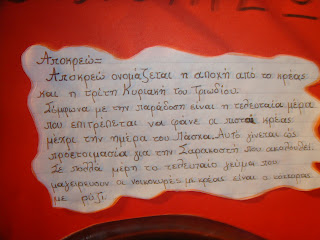 Αποκρεώ=
Αποκρεώ ονομάζεται η αποχή από το κρέας
και η τρίτη Κυριακή του Τριωδίου.
Σύμφωνα με την παράδοση είναι η τελευταία μέρα
που επιτρέπεται να φάνε οι πιστοί κρέας
μέχρι την ημέρα του Πάσχα. Αυτό γίνεται ως
προετοιμασία για την Σαρακοστή που ακολουθεί.
Σε πολλά μέρη το τελευταίο γεύμα που
μαγειρεύουν οι νοικοκυρές με κρέας είναι ο κόκορας
με ρύζι.